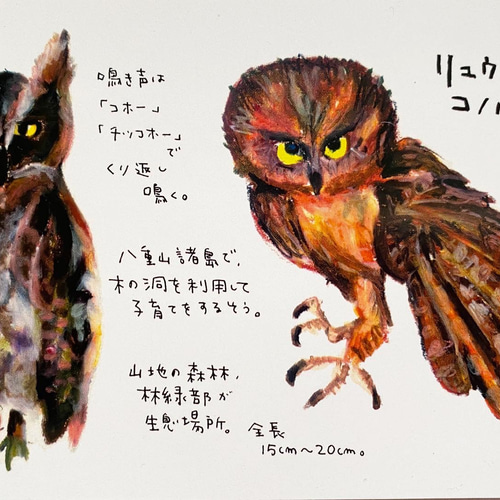 鳴き声は
「コホー」
「チッコホー」
で
くり返し
鳴く。
八重山諸島で、
木の洞を利用して
子育てをするそう。
山地の森林、
林緑部が
生息場所。
全長
15cm〜20cm。
リュウ
コノハ